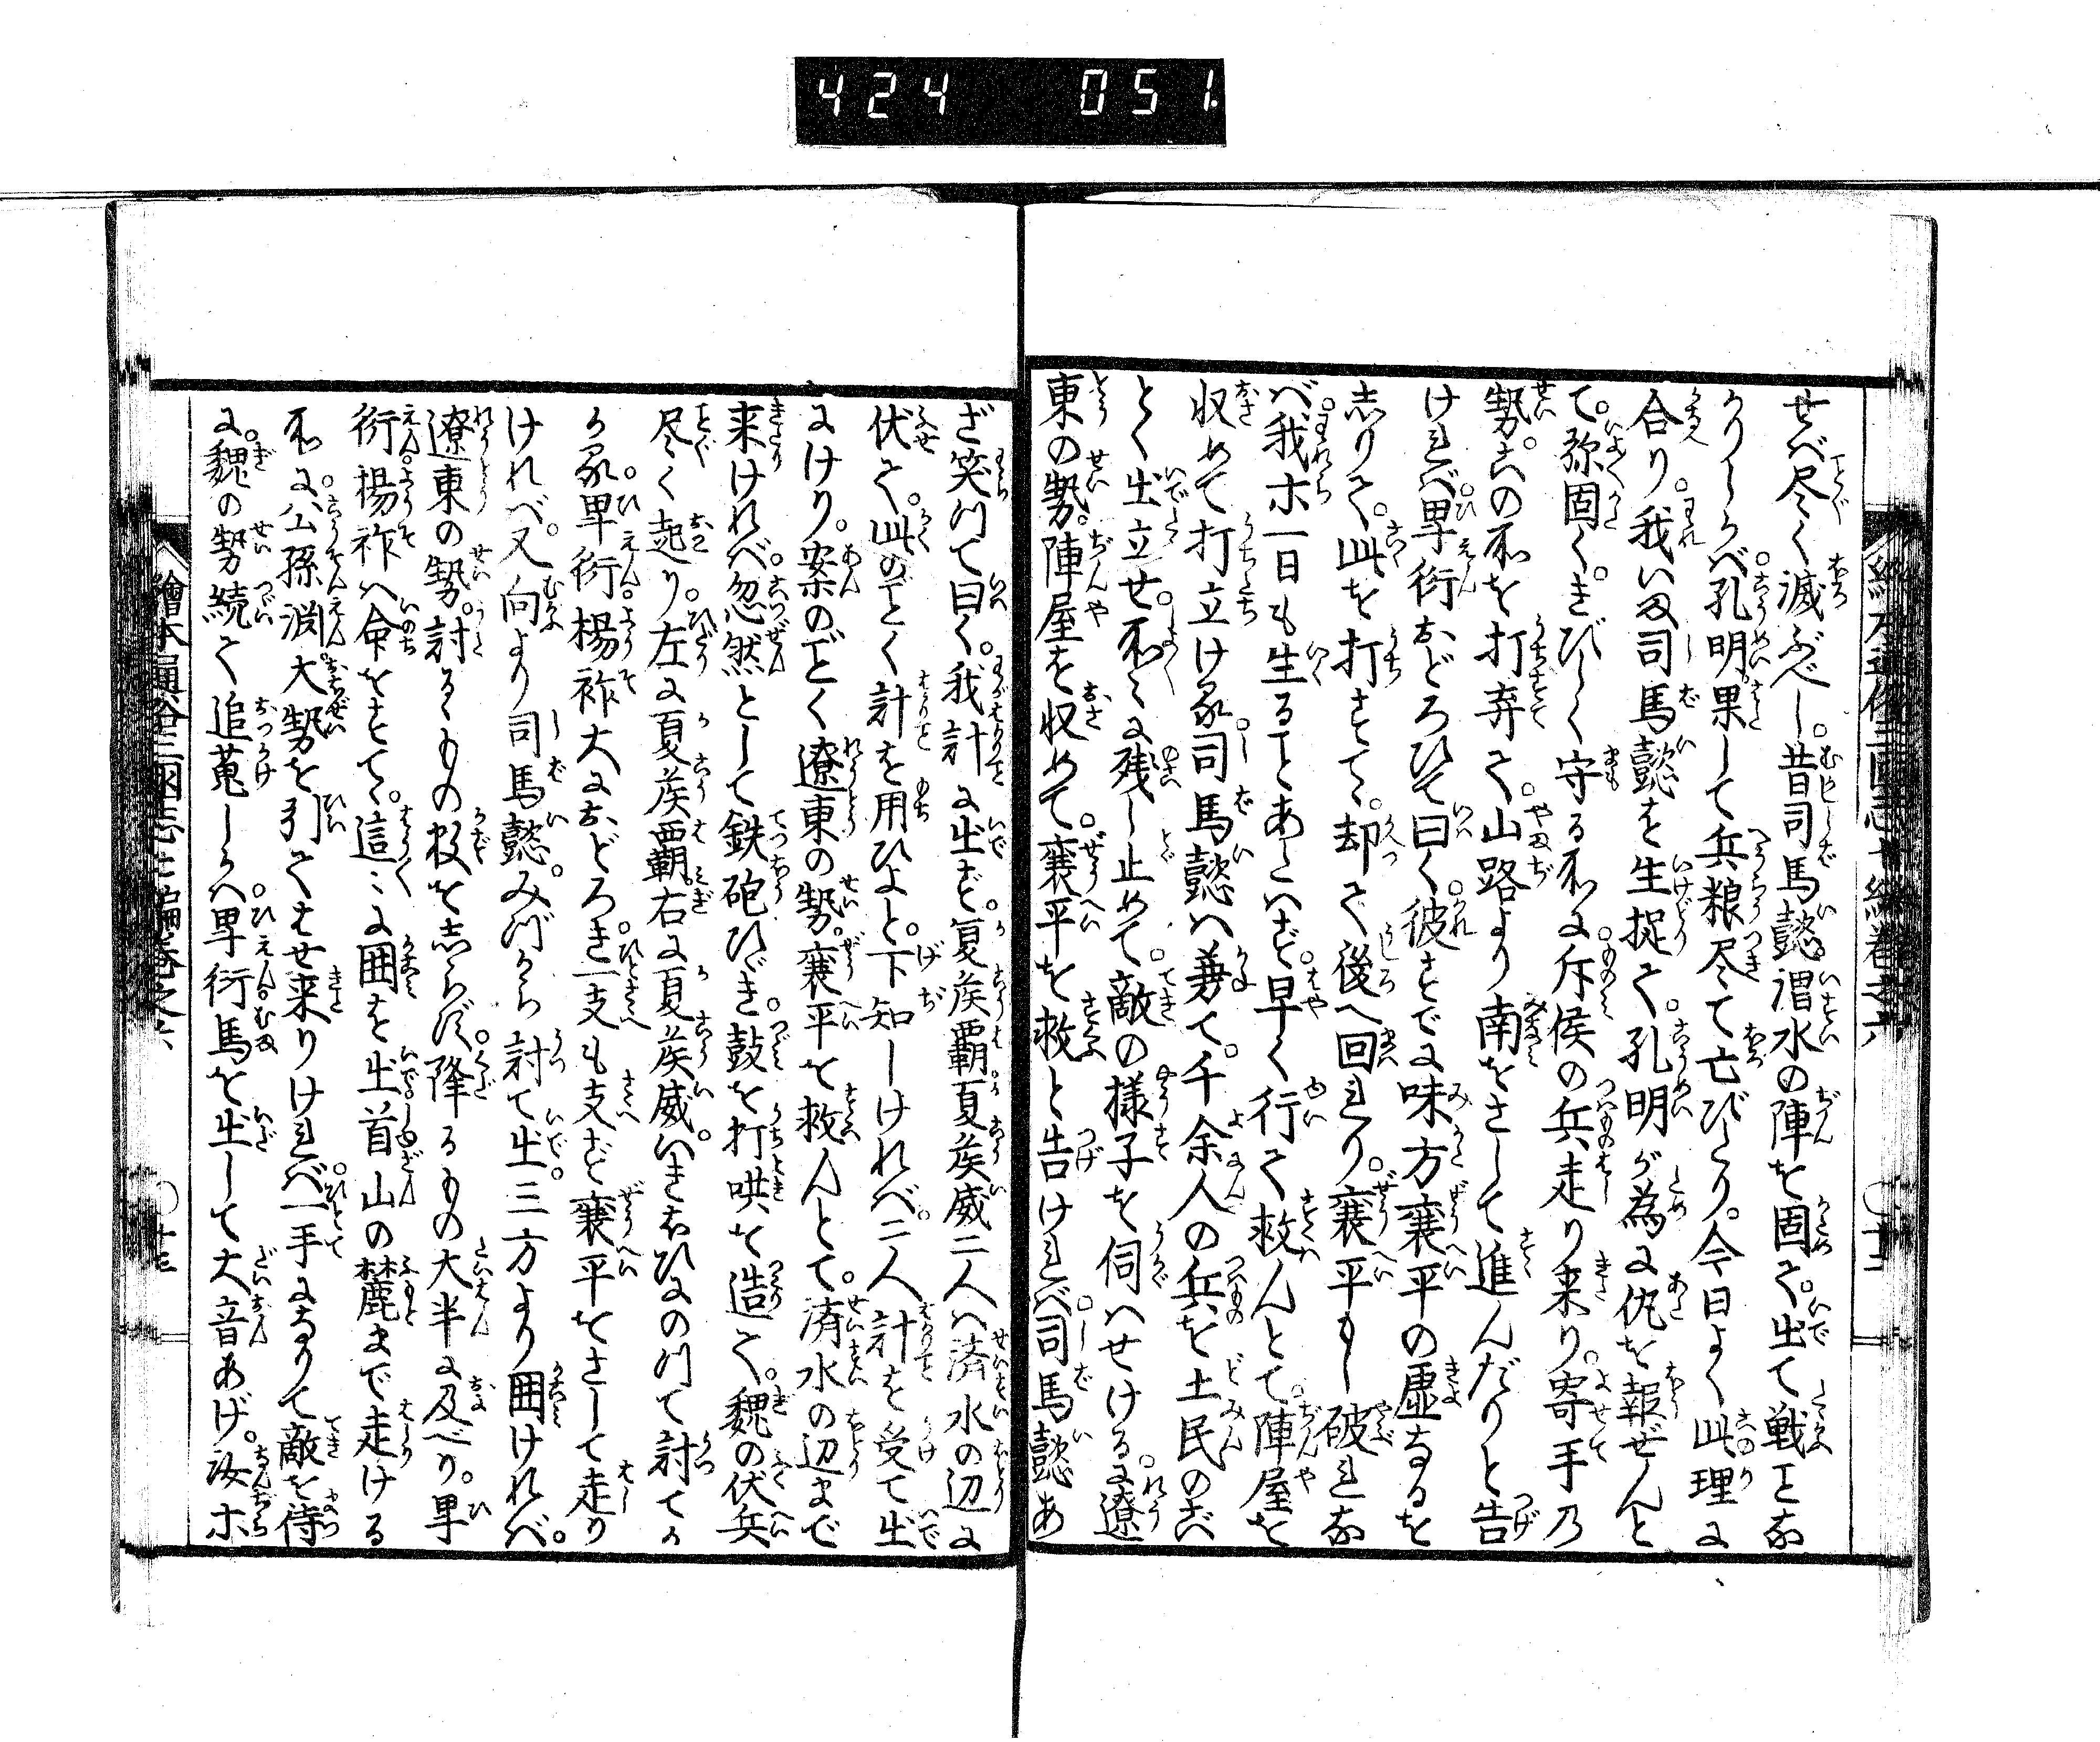 424 051
せば尽く滅ぶべし。昔司馬懿。渭水の陣を固そ。出て戦ことな
かりしかば。孔明果して兵粮尽て亡びたり。今日よく此理に
合り。我いま司馬懿を生捉そ。孔明が為に仇を報ぜんと
て。弥固く。きびしく守る所に。斥候の兵走り来り。寄手乃
勢。この所を打弃そ。山路より南をさして進んだりと告
ければ。卑衍おどろひて曰く。彼すでに味方襄平の虚なるを
志りそ。此を打すて。却そ後へ回れり。襄平もし破れな
ば。我ホ一日も生ることあたはず。早く行そ救んとて。陣屋を
収めて打立ける。司馬懿ハ兼て。千余人の兵を土民のごと
とく出立せ。所々に残し止めて。敵の様子を伺ハせける。に遼
東の勢。陣屋を収めて。襄平を救と告ければ。司馬懿あ
ざ笑つて曰く。我計に出ず。夏侯覇夏侯威二人ハ済水の辺に
伏そ。此のごとく計を用ひよと。下知しければ。二人計を受て出
にけり。案のごとく遼東の勢。襄平を救んとて。済水の辺まで
来ければ。忽然として鉄砲ひゞき。鼓を打哄を造そ。魏の伏兵
尽く起り。左に夏侯覇。右に夏侯威。いきおひにのつて討てか
かる。卑衍。楊祚大におどろき。一支も支ず襄平をさして走り
ければ。又向より司馬懿。みづから討て出。三方より囲ければ。
遼東の勢。討るゝもの数を志らず。降るもの大半に及べり。卑
衍。楊祚ハ命をすて。這〻に囲を出。首山の麓まで走ける
所に。公孫渊。大勢を引そはせ来りければ。一手になりて敵を待
に。魏の勢続そ追蒐しかハ。卑衍。馬を出して大音あげ。汝ホ
繪本通俗三国志七編巻之六